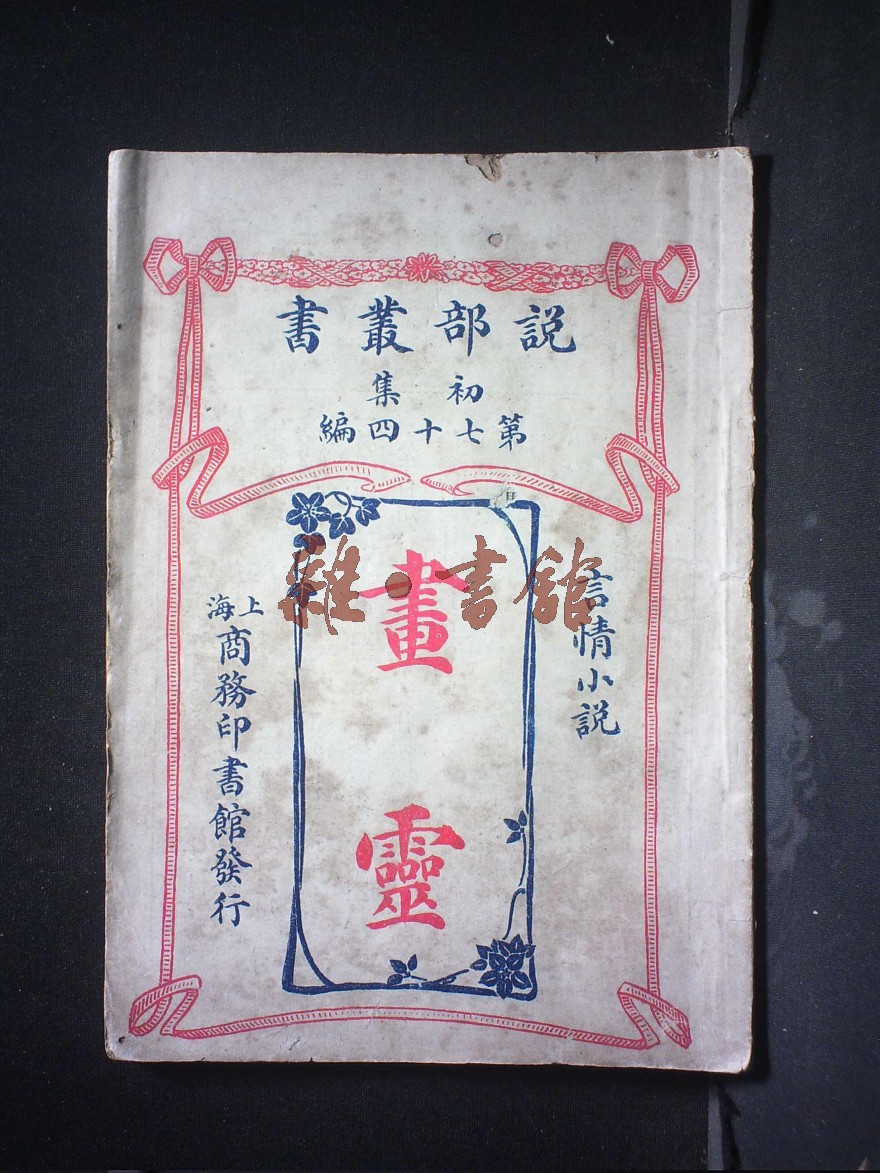 説部叢書
初集
第七十四編
言情小説
畫靈
上海
商務印書館發行
雜·書館